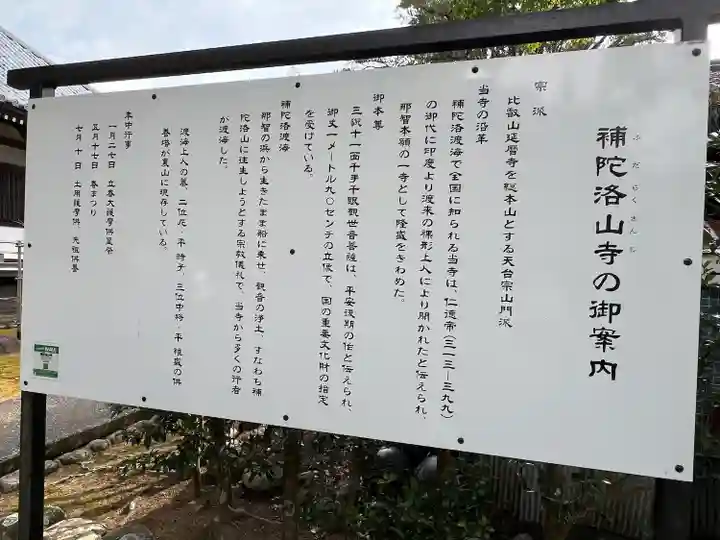 補陀洛山寺の御案内
ふだらくさんじ
宗派
比叡山延暦寺を総本山とする天台宗山門派
当寺の沿革
補陀洛渡海で全国に知られる当寺は、仁徳帝(三一三ー三九九)
の御代に印度より渡来の裸形上人により開かれたと伝えられ、
那智本願の一寺として隆盛をきわめた。
御本尊
三貌十一面千手千眼観世音菩薩は、平安後期の作と伝えられ、
御丈一メートル九〇センチの立像で、国の重要文化財の指定
を受けている。
補陀洛渡海
那智の浜から生きたまま船に乗せ、観音の浄土、すなわち補
陀洛山に往生しようとする宗教儀礼で、当寺から多くの行者
が渡海した。
渡海上人の墓、二位尼・平 時子、三位中将・平 維盛の供
養塔が裏山に現存している。
年中行事
一月二七日 立春大護摩供星祭
五月十七日 春まつり
七月十日 土用護摩供、先祖供養